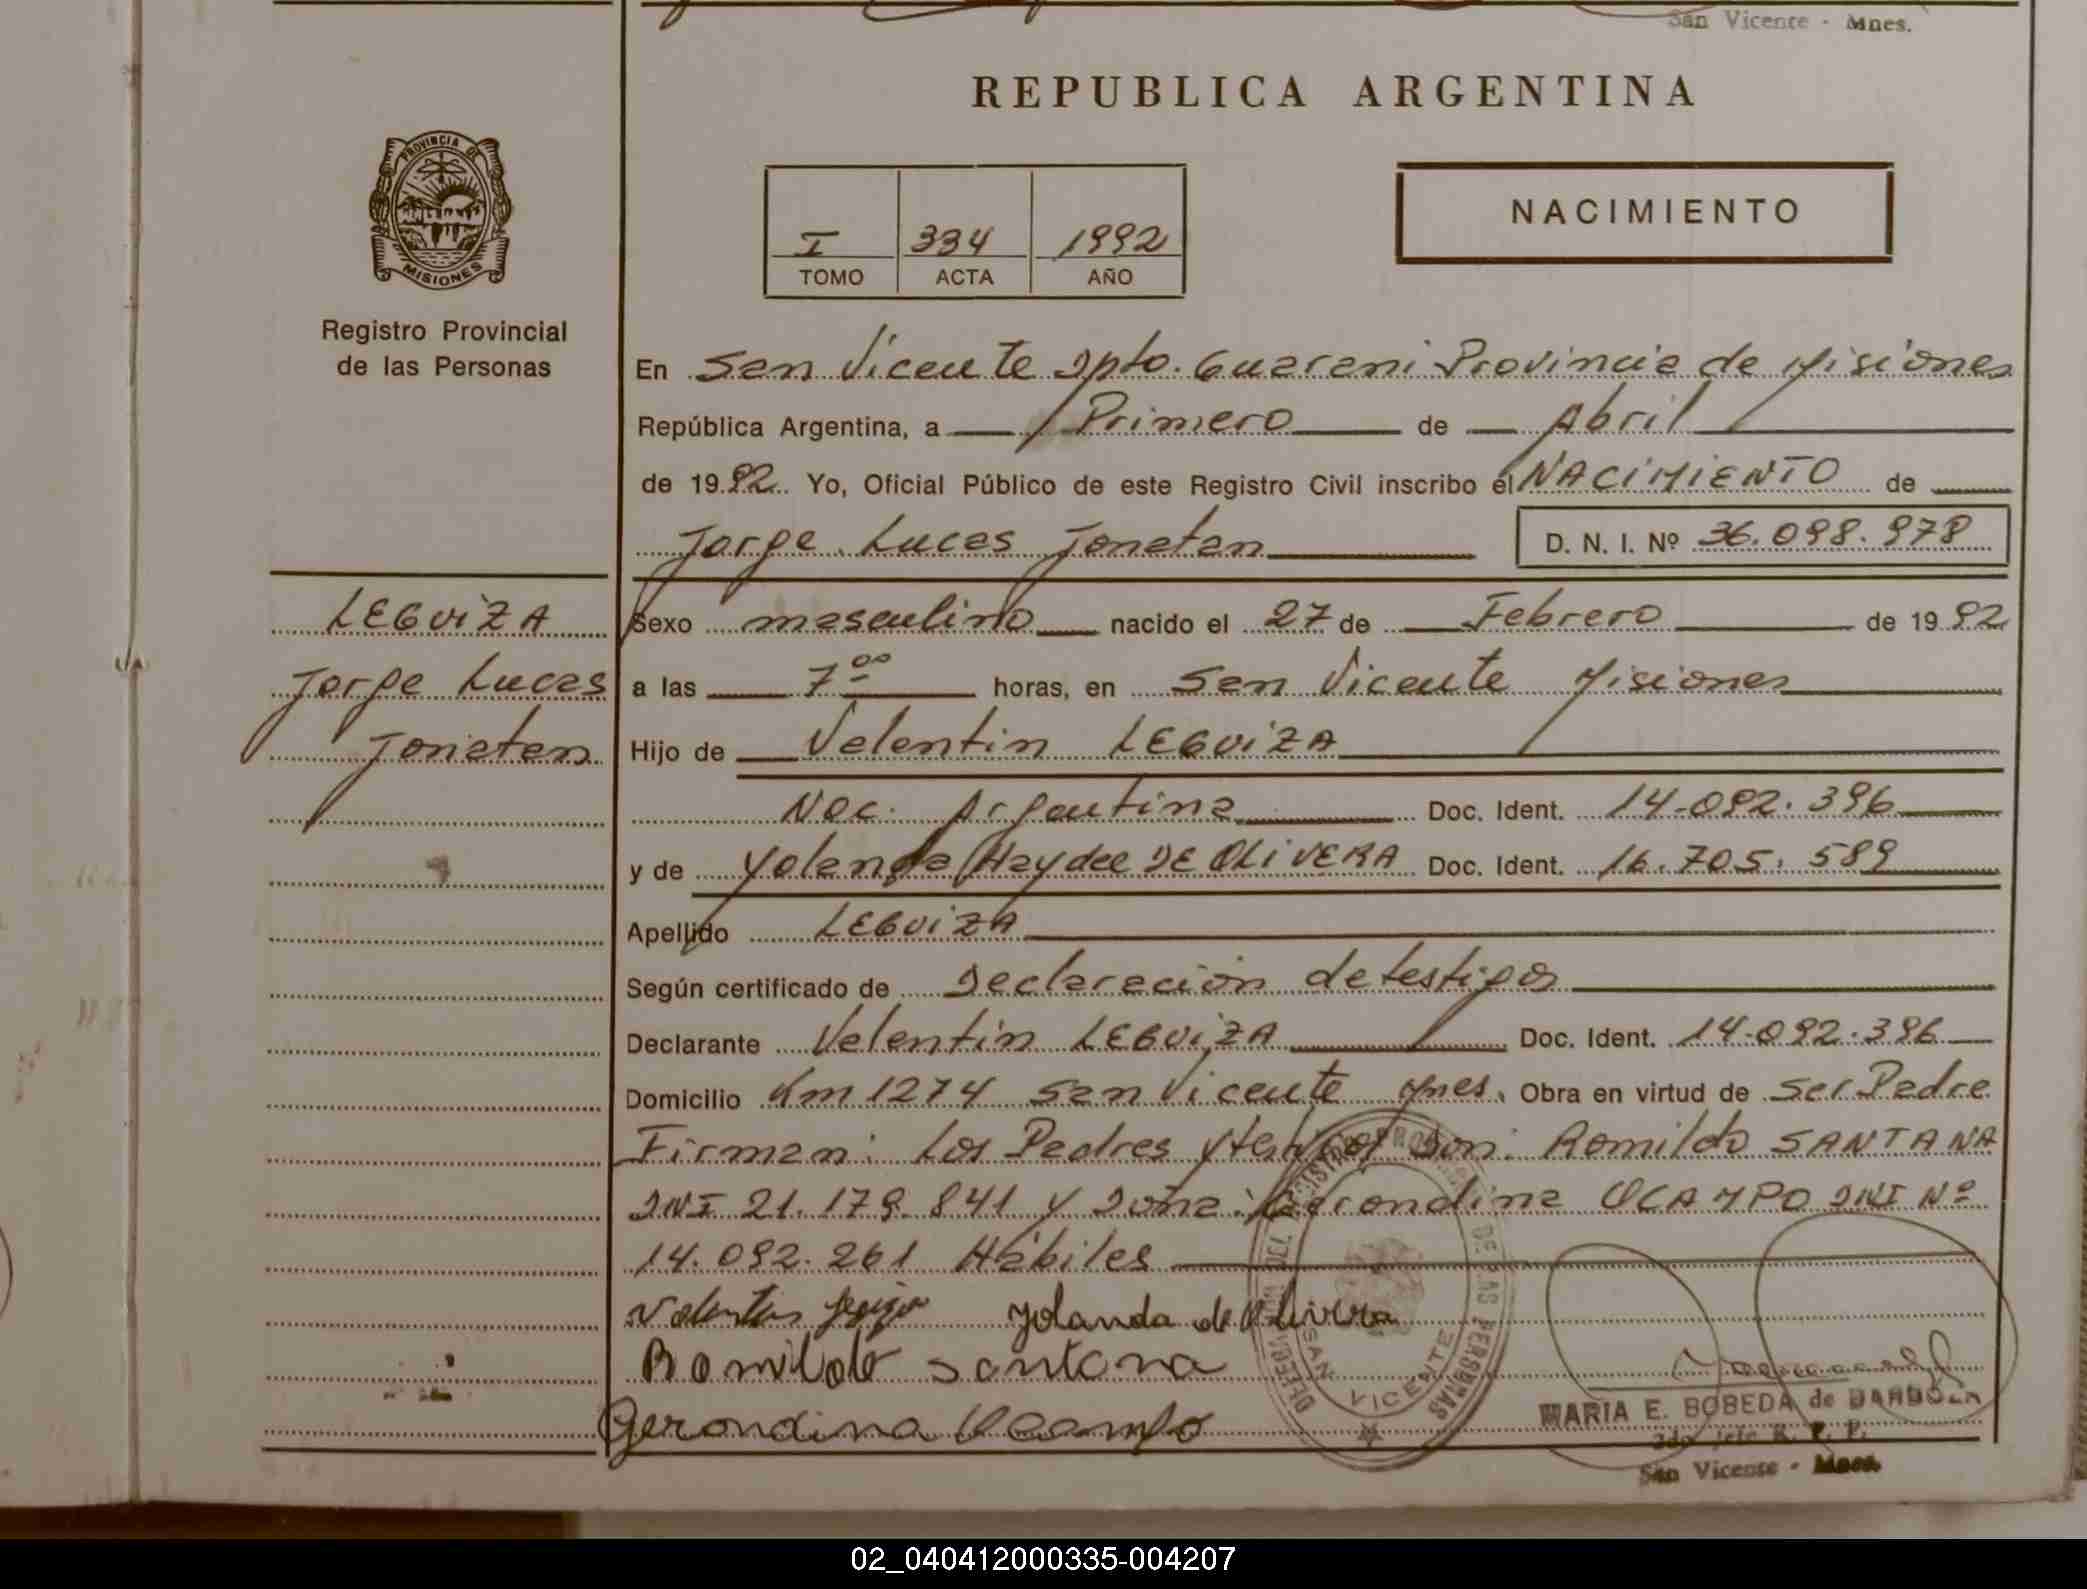 San Vicente - Mnes.
REPUBLICA ARGENTINA
PROVINCIA DE
MISIONES
Registro Provincial
de las Personas
I 334 1992
TOMO ACTA AÑO
NACIMIENTO
En San Vicente Dpto. Guarani Provincia de Misiones
República Argentina, a Primero de Abril
de 1992 Yo, Oficial Público de este Registro Civil inscribo el NACIMIENTO de
Jorge Lucas Jonatan D. N. I. Nº 36.098.978
LEGUIZA
Jorge Lucas
Jonatan
Sexo masculino nacido el 27 de Febrero de 1992
a las 7 00 horas, en San Vicente Misiones
Hijo de Valentin LEGUIZA
Nac. Argentina Doc. Ident. 14.092.396
y de Yolanda Haydee DE OLIVERA Doc. Ident. 16.705.589
Apellido LEGUIZA
Según certificado de Declaración de testigos
Declarante Valentin LEGUIZA Doc. Ident. 14.092.396
Domicilio Km 1274 San Vicente Mnes. Obra en virtud de Ser Padre
Firman: Los Padres y testigos Don: Romildo SANTANA
DNI 21.179.841 y Doña: Gerondina OCAMPO DNI Nº
14.092.261 Hábiles
Valentin Yolanda de Olivera
Romildo Santana
Gerondina Ocampo
DELEGACION DEL REGISTRO PROVINCIAL DE LAS PERSONAS
SAN VICENTE
MARIA E. BOBEDA de BARBOZA
2do Jefe R. P. P.
San Vicente - Mnes.
02_040412000335-004207